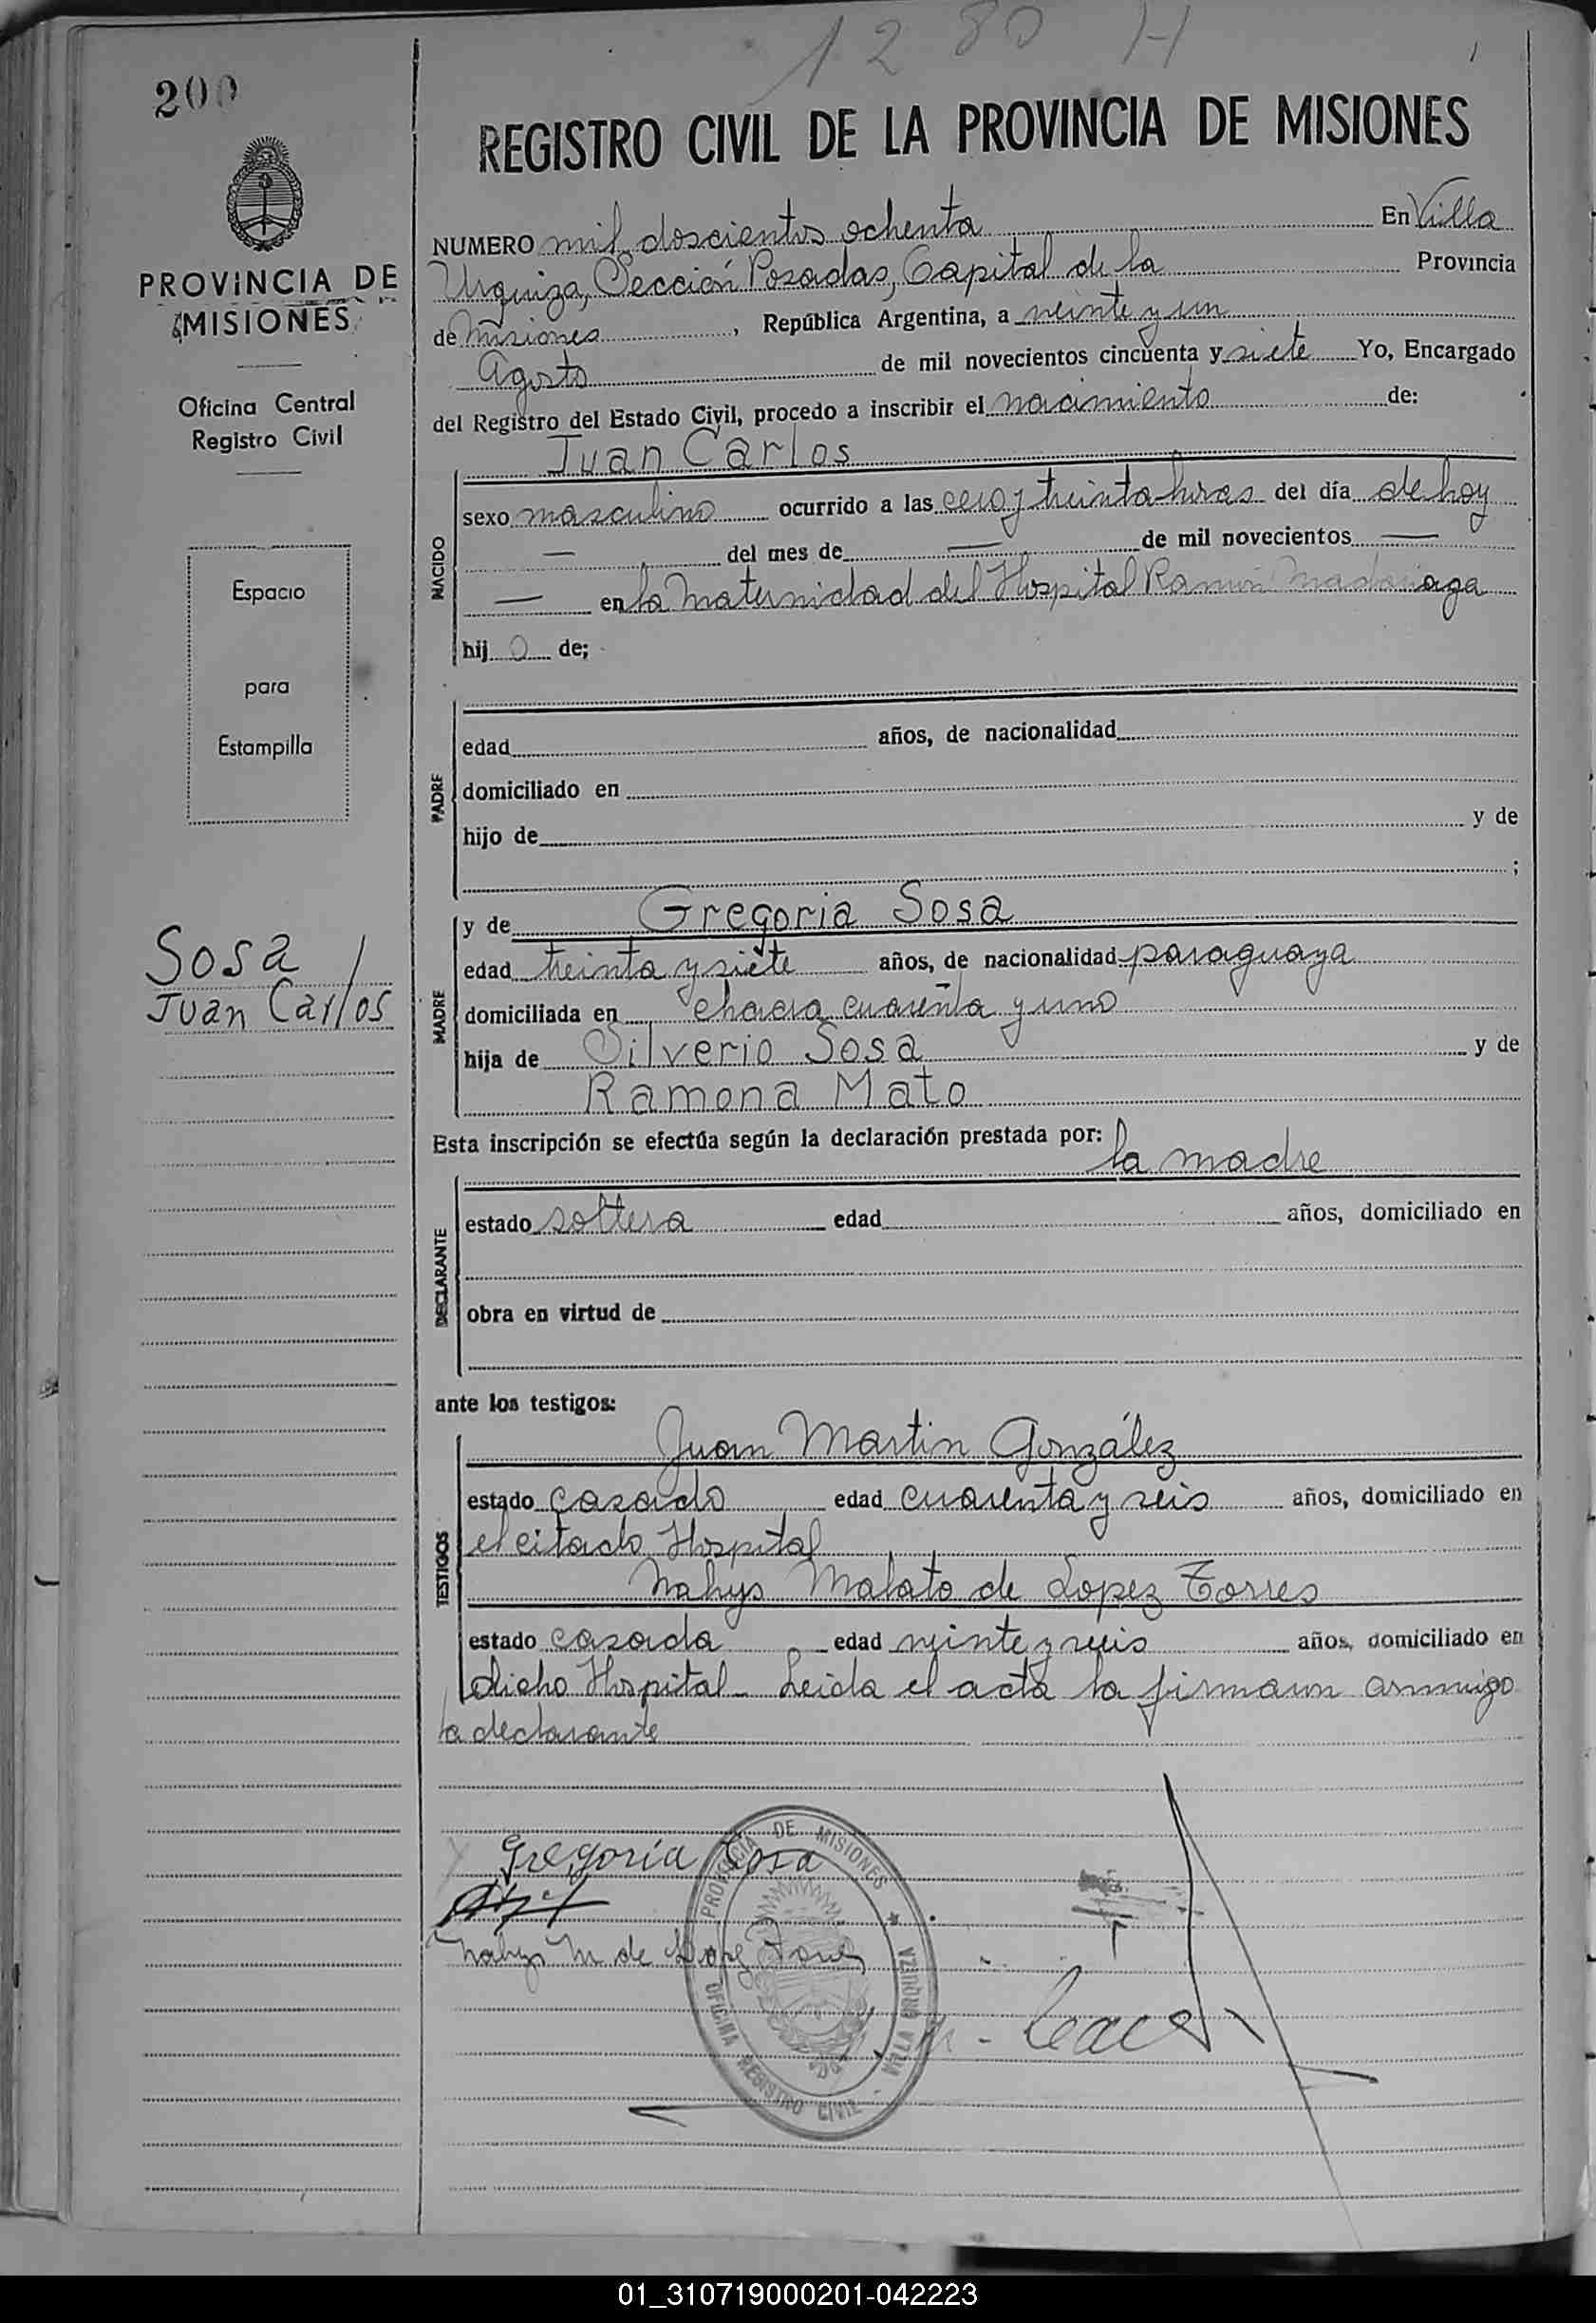 1280 H
200
REGISTRO CIVIL DE LA PROVINCIA DE MISIONES
PROVINCIA DE
MISIONES
Oficina Central
Registro Civil
Espacio
para
Estampilla
Sosa
Juan Carlos
NUMERO mil doscientos ochenta En Villa
Urquiza, Sección Posadas, Capital de la Provincia
de Misiones, República Argentina, a veinte y un
Agosto de mil novecientos cincuenta y siete Yo, Encargado
del Registro del Estado Civil, procedo a inscribir el nacimiento de:
Juan Carlos
NACIDO
sexo masculino ocurrido a las cero y treinta horas del día de hoy
— del mes de — de mil novecientos —
— en la Maternidad del Hospital Ramón Madariaga
hij o de;
PADRE
edad años, de nacionalidad
domiciliado en
hijo de y de
;
MADRE
y de Gregoria Sosa
edad treinta y siete años, de nacionalidad paraguaya
domiciliada en chacra cuarenta y uno
hija de Silverio Sosa y de
Ramona Mato
Esta inscripción se efectúa según la declaración prestada por:
la madre
DECLARANTE
estado soltera edad años, domiciliado en
obra en virtud de
ante los testigos:
TESTIGOS
Juan Martin González
estado casado edad cuarenta y seis años, domiciliado en
el citado Hospital
Nahys Malato de Lopez Torres
estado casada edad veinte y seis años, domiciliado en
dicho Hospital - Leida el acta la firmaron conmigo
la declarante
Gregoria Sosa
Nahys M de Lopez Torres
PROVINCIA DE MISIONES
OFICINA REGISTRO CIVIL - VILLA URQUIZA
01_310719000201-042223